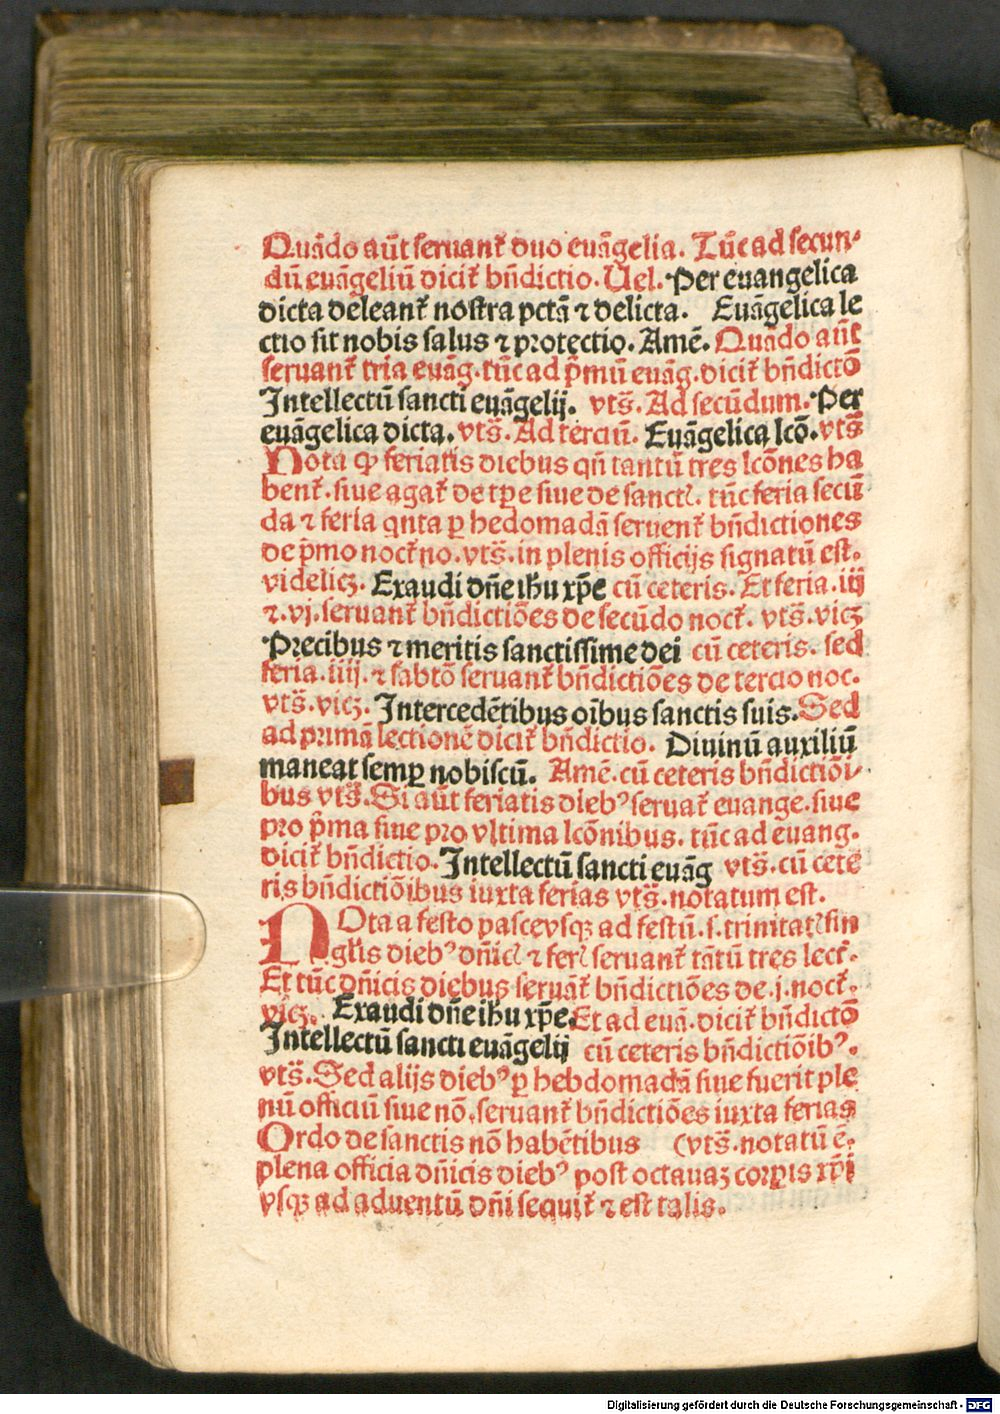 Quādo aūt seruant᷑ duo euāgelia. Tūc ad secun⸗
dū euāgeliū dicit᷑ bn̄dictio. Uel. Per euangelica
dicta deleant᷑ nostra pctā ⁊ delicta. Euāgelica le
ctio sit nobis salus ⁊ protectio. Amē. Quādo aūt
seruant᷑ tria euāg. tūc ad p̄mū euāg. dicit᷑ bn̄dictō
Intellectū sancti euāgelij. vts̄. Ad secūdum. Per
euāgelica dicta. vts̄. Ad terciū. Euāgelica lcō. vts̄
Nota ꝙ feriatis diebus qn̄ tantū tres lcōnes ha
bent᷑. siue agat᷑ de tꝑe siue de sanct. tūc feria secū
da ⁊ feria qnta ꝑ hedomadā seruent᷑ bn̄dictiones
de p̄mo noct᷑no. vts̄. in plenis officijs signatū est.
videlicꝫ. Exaudi dn̄e ihu xp̄e cū ceteris. Et feria. iij
⁊. vj. seruant᷑ bn̄dictiōes de secūdo noct᷑. vts̄. vicꝫ
Precibus ⁊ meritis sanctissime dei cū ceteris. sed
feria. iiij. ⁊ sabtō seruant᷑ bn̄dictiōes de tercio noc.
vts̄. vicꝫ. Intercedētibus oībus sanctis suis. Sed
ad primā lectionē dicit᷑ bn̄dictio. Diuinū auxiliū
maneat semꝑ nobiscū. Amē. cū ceteris bn̄dictiōi⸗
bus vts̄. Si aūt feriatis dieb⁹ seruāt᷑ euange. siue
pro p̄ma siue pro vltima lcōnibus. tūc ad euang.
dicit᷑ bn̄dictio. Intellectū sancti euāg vts̄. cū cete
ris bn̄dictiōibus iuxta ferias vts̄. notatum est.
NOta a festo pasce vsqꝫ ad festū. s. trinitat sin
gl̄is dieb⁹ dn̄ic ⁊ fer seruant᷑ tātū tres lect᷑.
Et tūc dn̄icis diebus seruāt᷑ bn̄dictiōes de. j. noct᷑.
vicꝫ. Exaudi dn̄e ihu xp̄e. Et ad euā. dicit᷑ bn̄dictō
Intellectū sancti euāgelij cū ceteris bn̄dictiōib⁹.
vts̄. Sed alijs dieb⁹ ꝑ hebdomadā siue fuerit ple
nū officiū siue nō. seruant᷑ bn̄dictiōes iuxta ferias
Ordo de sanctis nō habētibus (vts̄. notatū ē.
plena officia dn̄icis dieb⁹ post octauaꝫ corꝑis xp̄i
vsqꝫ ad aduentū dn̄i sequit᷑ ⁊ est talis.
Digitalisierung gefördert durch die Deutsche Forschungsgemeinschaft - DFG